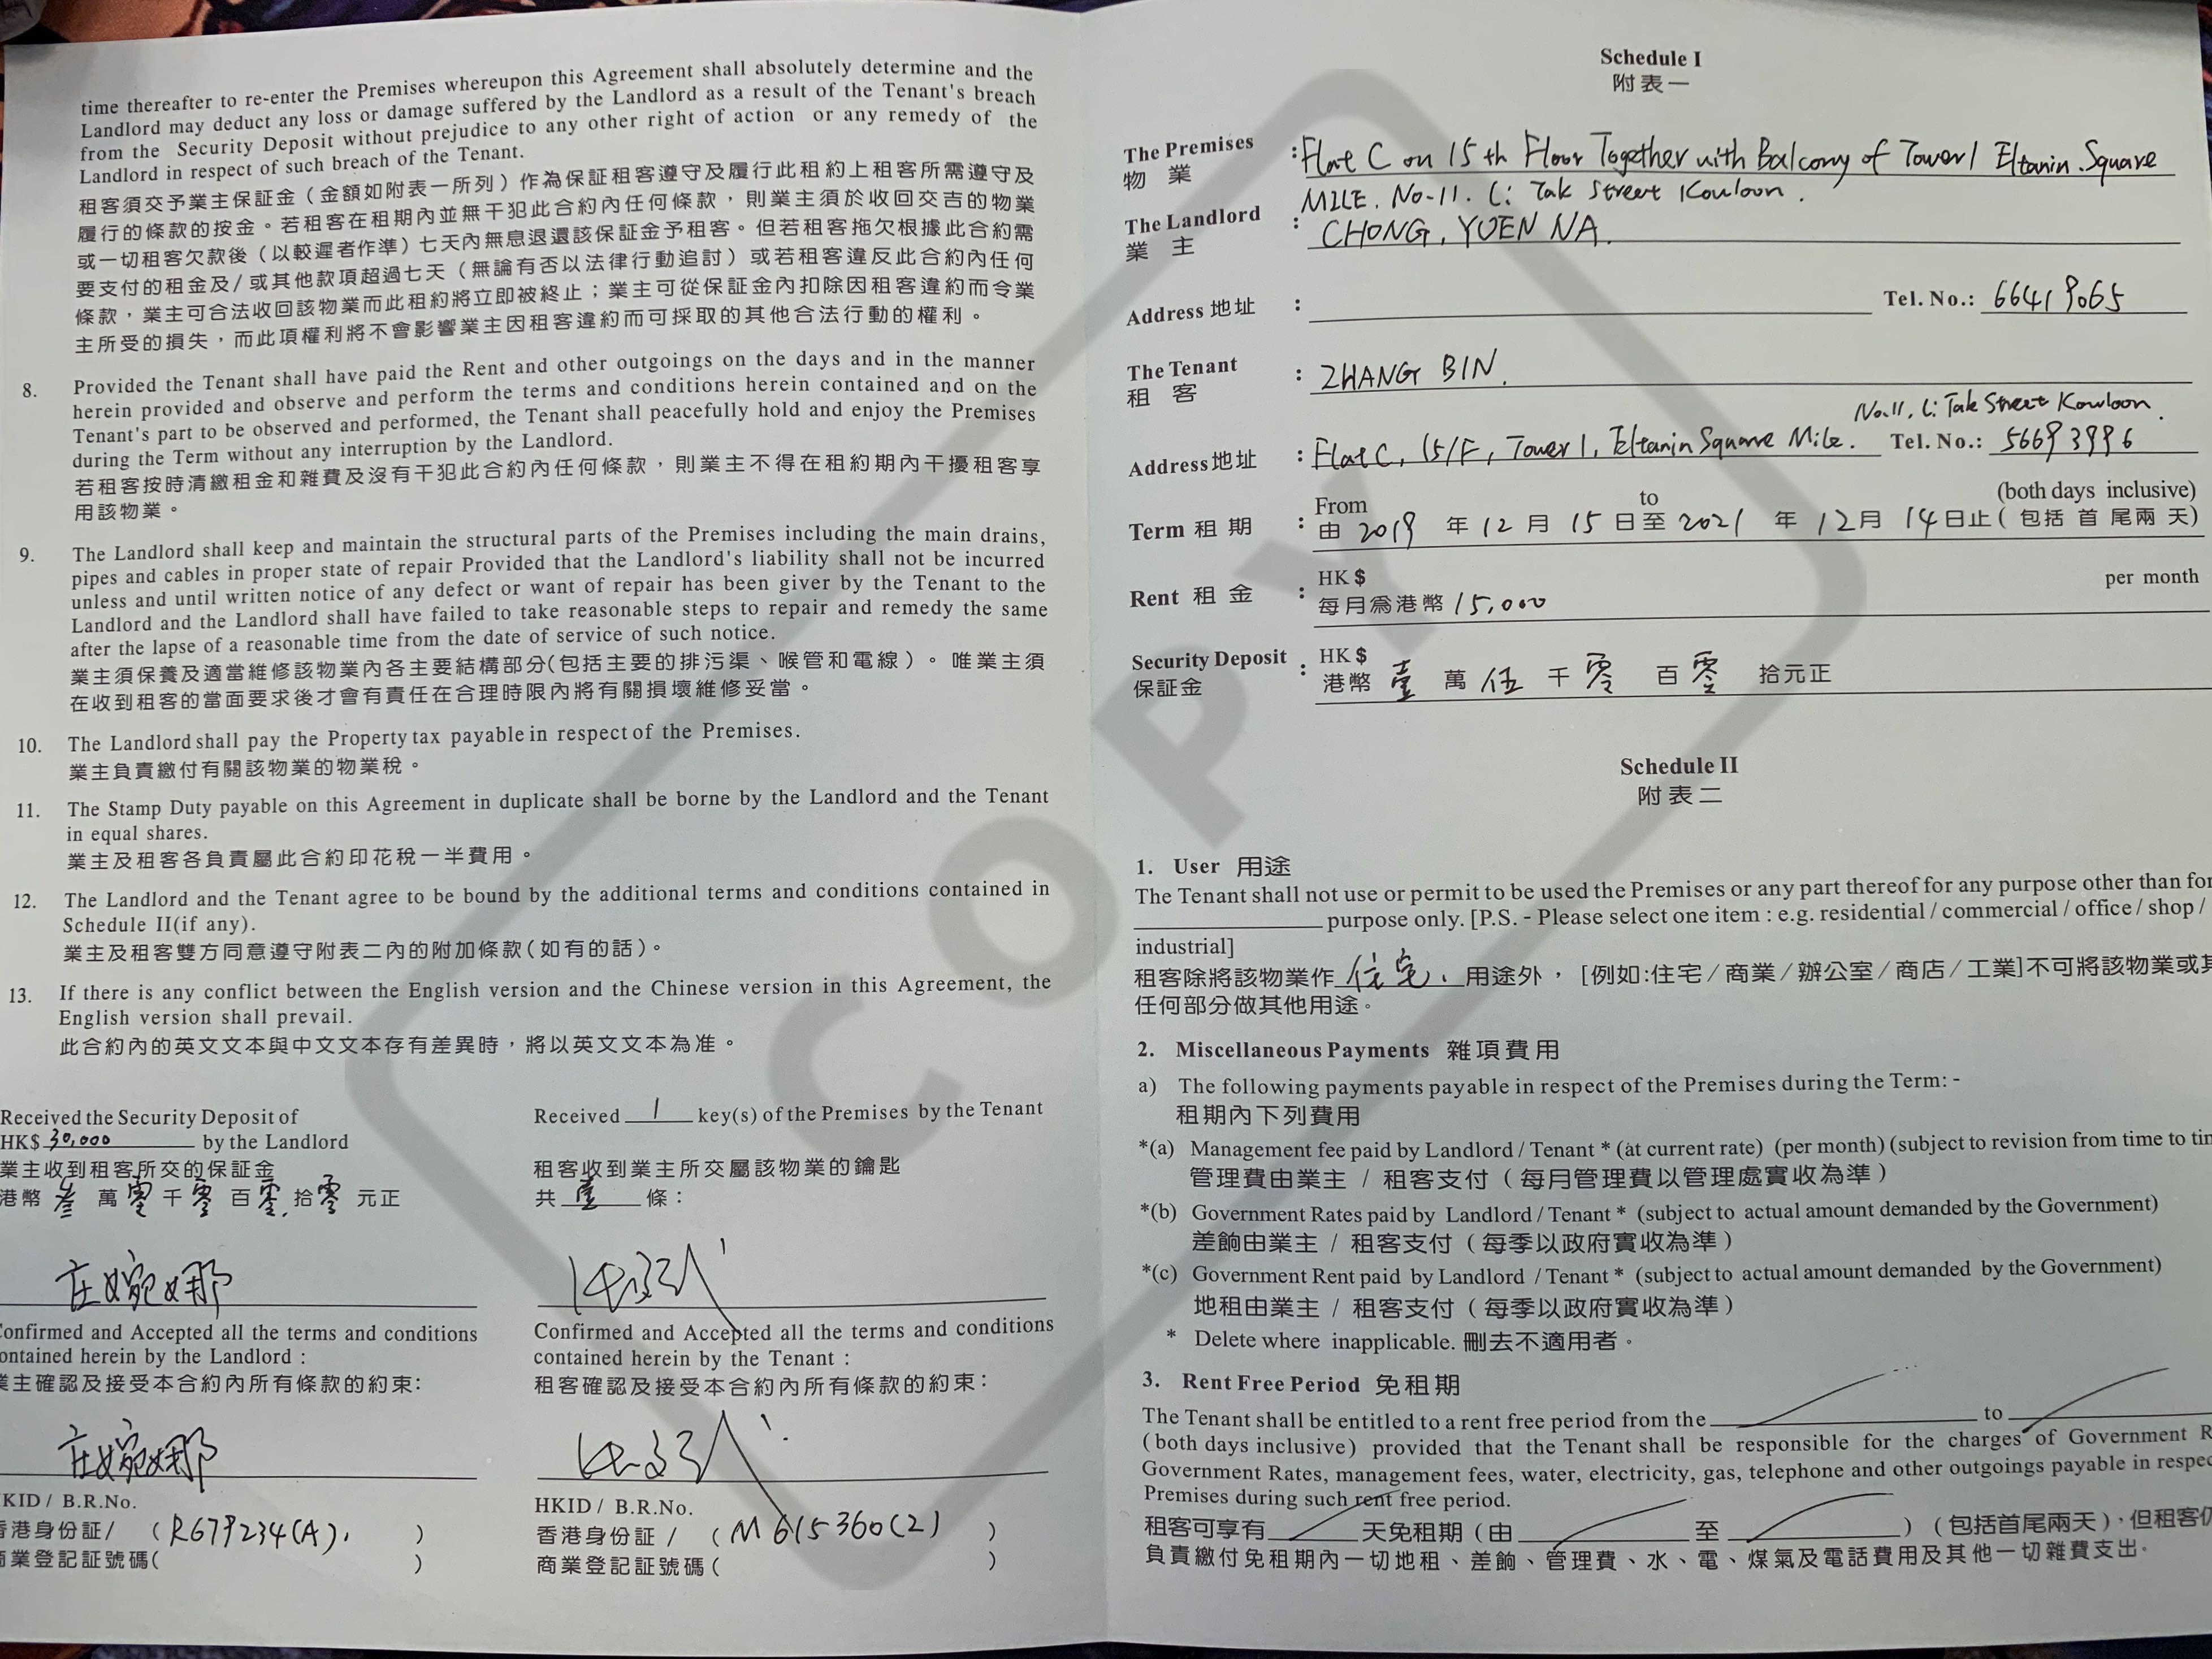 time thereafter to re-enter the Premises whereupon this Agreement shall absolutely determine and the
Landlord may deduct any loss or damage suffered by the Landlord as a result of the Tenant's breach
from the Security Deposit without prejudice to any other right of action or any remedy of the
Landlord in respect of such breach of the Tenant.
租客須交予業主保証金（金額如附表一所列）作為保証租客遵守及履行此租約上租客所需遵守及
履行的條款的按金。若租客在租期內並無干犯此合約內任何條款，則業主須於收回交吉的物業
或一切租客欠款後（以較遲者作準）七天內無息退還該保証金予租客。但若租客拖欠根據此合約需
要支付的租金及/或其他款項超過七天（無論有否以法律行動追討）或若租客違反此合約內任何
條款，業主可合法收回該物業而此租約將立即被終止；業主可從保証金內扣除因租客違約而令業
主所受的損失，而此項權利將不會影響業主因租客違約而可採取的其他合法行動的權利。
8. Provided the Tenant shall have paid the Rent and other outgoings on the days and in the manner
herein provided and observe and perform the terms and conditions herein contained and on the
Tenant's part to be observed and performed, the Tenant shall peacefully hold and enjoy the Premises
during the Term without any interruption by the Landlord.
若租客按時清繳租金和雜費及沒有干犯此合約內任何條款，則業主不得在租約期內干擾租客享
用該物業。
9. The Landlord shall keep and maintain the structural parts of the Premises including the main drains,
pipes and cables in proper state of repair Provided that the Landlord's liability shall not be incurred
unless and until written notice of any defect or want of repair has been giver by the Tenant to the
Landlord and the Landlord shall have failed to take reasonable steps to repair and remedy the same
after the lapse of a reasonable time from the date of service of such notice.
業主須保養及適當維修該物業內各主要結構部分(包括主要的排污渠、喉管和電線)。唯業主須
在收到租客的當面要求後才會有責任在合理時限內將有關損壞維修妥當。
10. The Landlord shall pay the Property tax payable in respect of the Premises.
業主負責繳付有關該物業的物業稅。
11. The Stamp Duty payable on this Agreement in duplicate shall be borne by the Landlord and the Tenant
in equal shares.
業主及租客各負責屬此合約印花稅一半費用。
12. The Landlord and the Tenant agree to be bound by the additional terms and conditions contained in
Schedule II(if any).
業主及租客雙方同意遵守附表二內的附加條款(如有的話)。
13. If there is any conflict between the English version and the Chinese version in this Agreement, the
English version shall prevail.
此合約內的英文文本與中文文本存有差異時，將以英文文本為准。
Received the Security Deposit of
HK$ 30,000 by the Landlord
業主收到租客所交的保証金
港幣 叁 萬 零 千 零 百 零 拾 零 元正
庄婉娜
Confirmed and Accepted all the terms and conditions
contained herein by the Landlord :
業主確認及接受本合約內所有條款的約束：
庄婉娜
HKID / B.R.No.
香港身份証/ (R679234(A). )
商業登記証號碼( )
Received 1 key(s) of the Premises by the Tenant
租客收到業主所交屬該物業的鑰匙
共 壹 條：
Confirmed and Accepted all the terms and conditions
contained herein by the Tenant :
租客確認及接受本合約內所有條款的約束：
HKID / B.R.No.
香港身份証 / ( M615360(2) )
商業登記証號碼( )
Schedule I
附表一
The Premises : Flat C on 15th Floor Together with Balcony of Tower 1 Eltanin.Square
物 業 MILE. No-11. Li Tak Street Kowloon.
The Landlord : CHONG, YUEN NA.
業 主
Address 地址 : Tel. No.: 66419065
The Tenant : ZHANG BIN.
租 客
No.11, Li Tak Street Kowloon.
Address地址 : Flat C, 15/F, Tower 1, Eltanin Square Mile. Tel. No.: 56693996
From to (both days inclusive)
Term 租 期 : 由 2019 年 12 月 15 日至 2021 年 12月 14日止( 包括 首 尾兩 天)
HK $ per month
Rent 租 金 : 每月為港幣 15,000
Security Deposit : HK $
保証金 港幣 壹 萬 伍 千 零 百 零 拾元正
Schedule II
附表二
1. User 用途
The Tenant shall not use or permit to be used the Premises or any part thereof for any purpose other than for
purpose only. [P.S. - Please select one item : e.g. residential / commercial / office / shop /
industrial]
租客除將該物業作 住宅. 用途外，[例如:住宅/商業/辦公室/商店/工業]不可將該物業或其
任何部分做其他用途。
2. Miscellaneous Payments 雜項費用
a) The following payments payable in respect of the Premises during the Term: -
租期內下列費用
*(a) Management fee paid by Landlord / Tenant * (at current rate) (per month) (subject to revision from time to tim
管理費由業主 / 租客支付（每月管理費以管理處實收為準）
*(b) Government Rates paid by Landlord / Tenant * (subject to actual amount demanded by the Government)
差餉由業主 / 租客支付（每季以政府實收為準）
*(c) Government Rent paid by Landlord / Tenant * (subject to actual amount demanded by the Government)
地租由業主 / 租客支付（每季以政府實收為準）
* Delete where inapplicable. 刪去不適用者。
3. Rent Free Period 免租期
The Tenant shall be entitled to a rent free period from the to
(both days inclusive) provided that the Tenant shall be responsible for the charges of Government R
Government Rates, management fees, water, electricity, gas, telephone and other outgoings payable in respec
Premises during such rent free period.
租客可享有 天免租期（由 至 ）（包括首尾兩天），但租客仍
負責繳付免租期內一切地租、差餉、管理費、水、電、煤氣及電話費用及其他一切雜費支出。
COPY